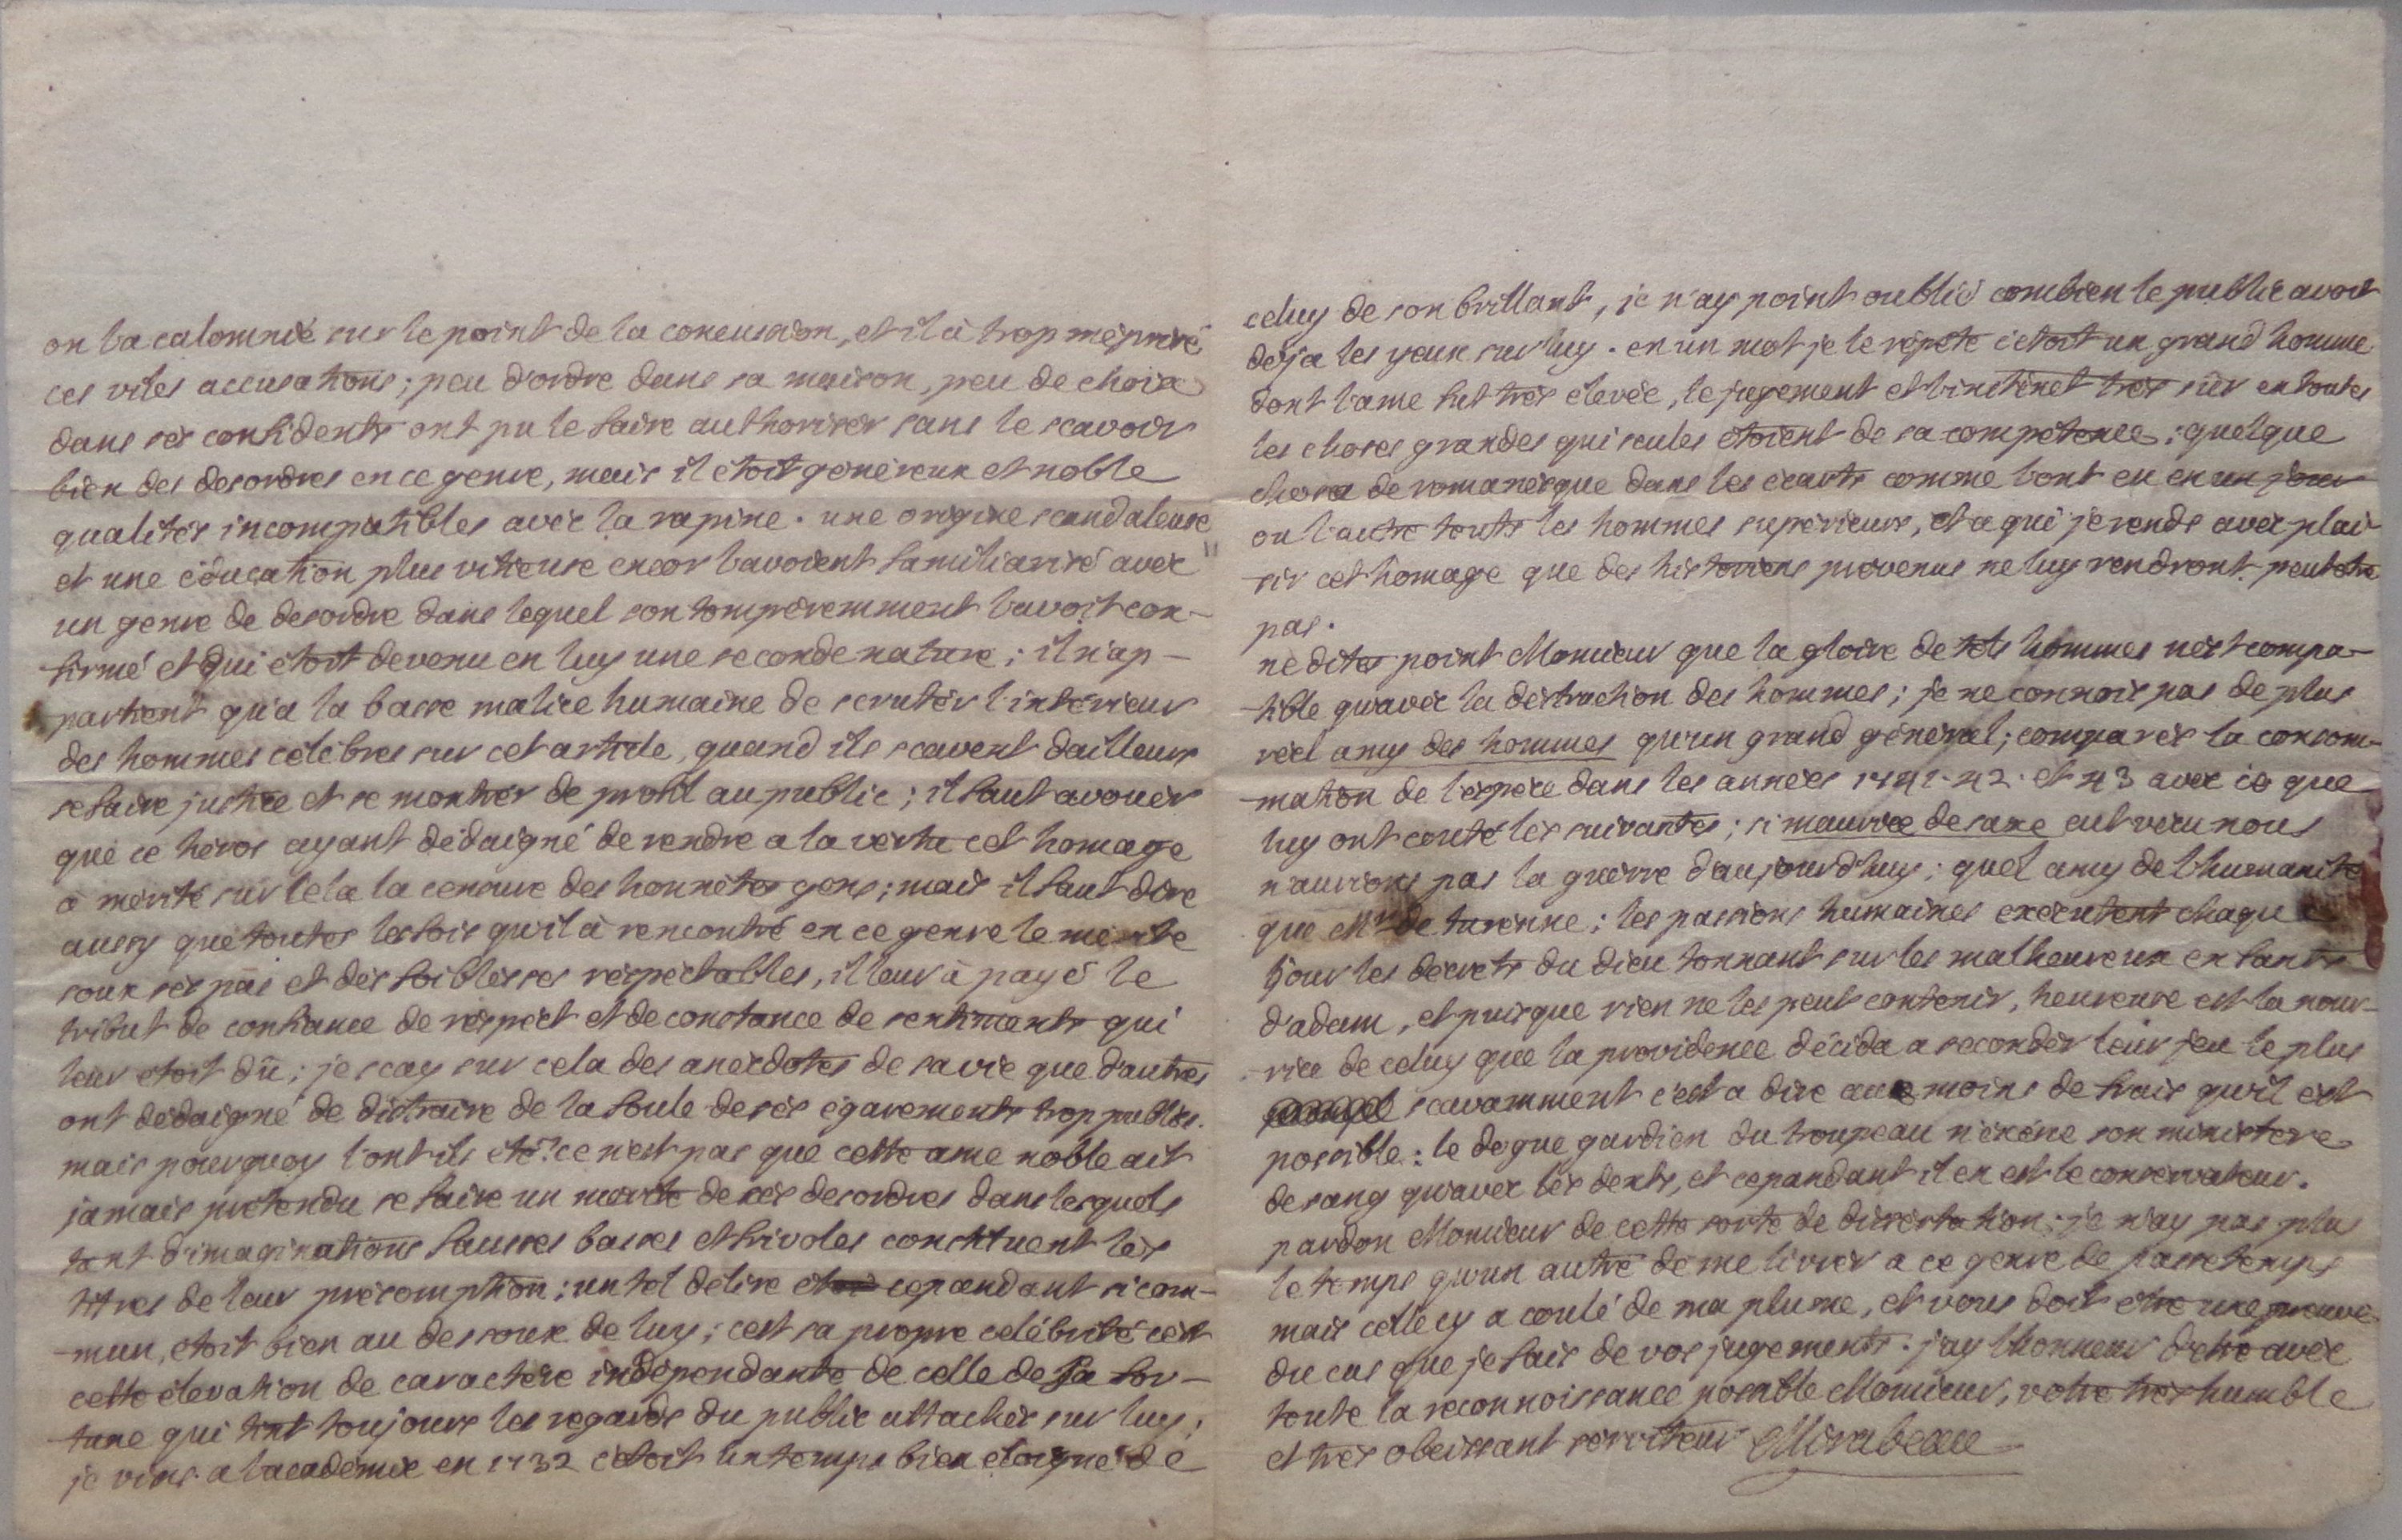 on l'a calomnié sur le point de la concussion, et il à trop méprisé
ces viles accusations; peu d'ordre dans sa maison, peu de choix
dans ses confidents ont pu le faire authoriser sans le scavoir
bien des desordres en ce genre, mais il etoit généreux et noble
qualités incompatibles avec la rapine. une origine scandaleuse
et une éducation plus vitieuse encor l'avoient familiarisé avec
un genre de desordre dans lequel son temperemment l'avoit con-
firmé et qui etoit devenu en luy une seconde nature; il n'ap-
partient qu'a la basse malice humaine de scruter l'intérieur
des hommes célébres sur cet article, quand ils scavent dailleurs
se faire justice et se montrer de profil au public; il faut avouer
que ce héros ayant dédaigné de rendre a la vertu cet homage
a mérité sur cela la censure des honnetes gens; mais il faut dire
aussy que toutes les fois qu'il à rencontré en ce genre le mérite
sous ses pas et des foiblesses respectables, il leur à payé le
tribut de confiance de respect et de constance de sentiments qui
leur etoit dû; je scay sur cela des anecdotes de sa vie que d'autres
ont dédaigné de distraire de la foule de ses égarements trop publics.
mais pourquoy l'ont ils eté? ce n'est pas que cette ame noble ait
jamais pretendu se faire un merite de ses desordres dans lesquels
tant d'imaginations fausses basses et frivoles constituent les
titres de leur présomption; un tel délire cependant si com-
mun, etoit bien au dessoux de luy; c'est sa propre célébrité c'est
cette élevation de caractere indépendante de celle de sa for-
tune qui tint toujours les regards du public attachés sur luy;
je vins a l'academie en 1732 c'etoit un temps bien eloigné de
celuy de son brillant, je n'ay point oublié combien le public avoit
deja les yeux sur luy. en un mot je le répete c'etoit un grand homme
dont l'ame fut très élevée, le jugement et l'instinct très sûr en toutes
les choses grandes qui seules etoient de sa compétence; quelque
chose de romanesque dans les écarts comme l'ont eu en un jour
ou l'autre touts les hommes supérieurs, et a qui je rends avec plai-
sir cet homage que des historiens prévenus ne luy rendront peutetre
pas.
ne dites point Monsieur que la gloire de tels hommes n'est compa-
tible qu'avec la destruction des hommes; je ne connois pas de plus
réel amy des hommes qu'un grand général; comparés la consom-
mation de l'espece dans les années 1741. 42. et 43 avec ce que
luy ont couté les suivantes; si maurice de saxe eut vecu nous
n'aurions pas la guerre d'aujourd'huy; quel amy de l'humanité
que Mr de turenne; les passions humaines executent chaque
jour les decrets du dieu tonnant sur les malheureux enfants
d'adam, et puisque rien ne les peut contenir, heureuse est la nour-
rice de celuy que la providence décida a seconder leur jeu le plus
scavamment c'est a dire au moins de frais qu'il est
possible: le dogue gardien du troupeau n'exerce son ministere
de sang qu'avec les dents, et cependant il en est le conservateur.
pardon Monsieur de cette sorte de dissertation; je n'ay pas plus
le temps qu'un autre de me livrer a ce genre de passetemps
mais celle cy a coulé de ma plume, et vous doit etre une preuve
du cas que je fais de vos jugements. j'ay l'honneur d'etre avec
toute la reconnoissance possible Monsieur, votre très humble
et très obeissant serviteur Mirabeau